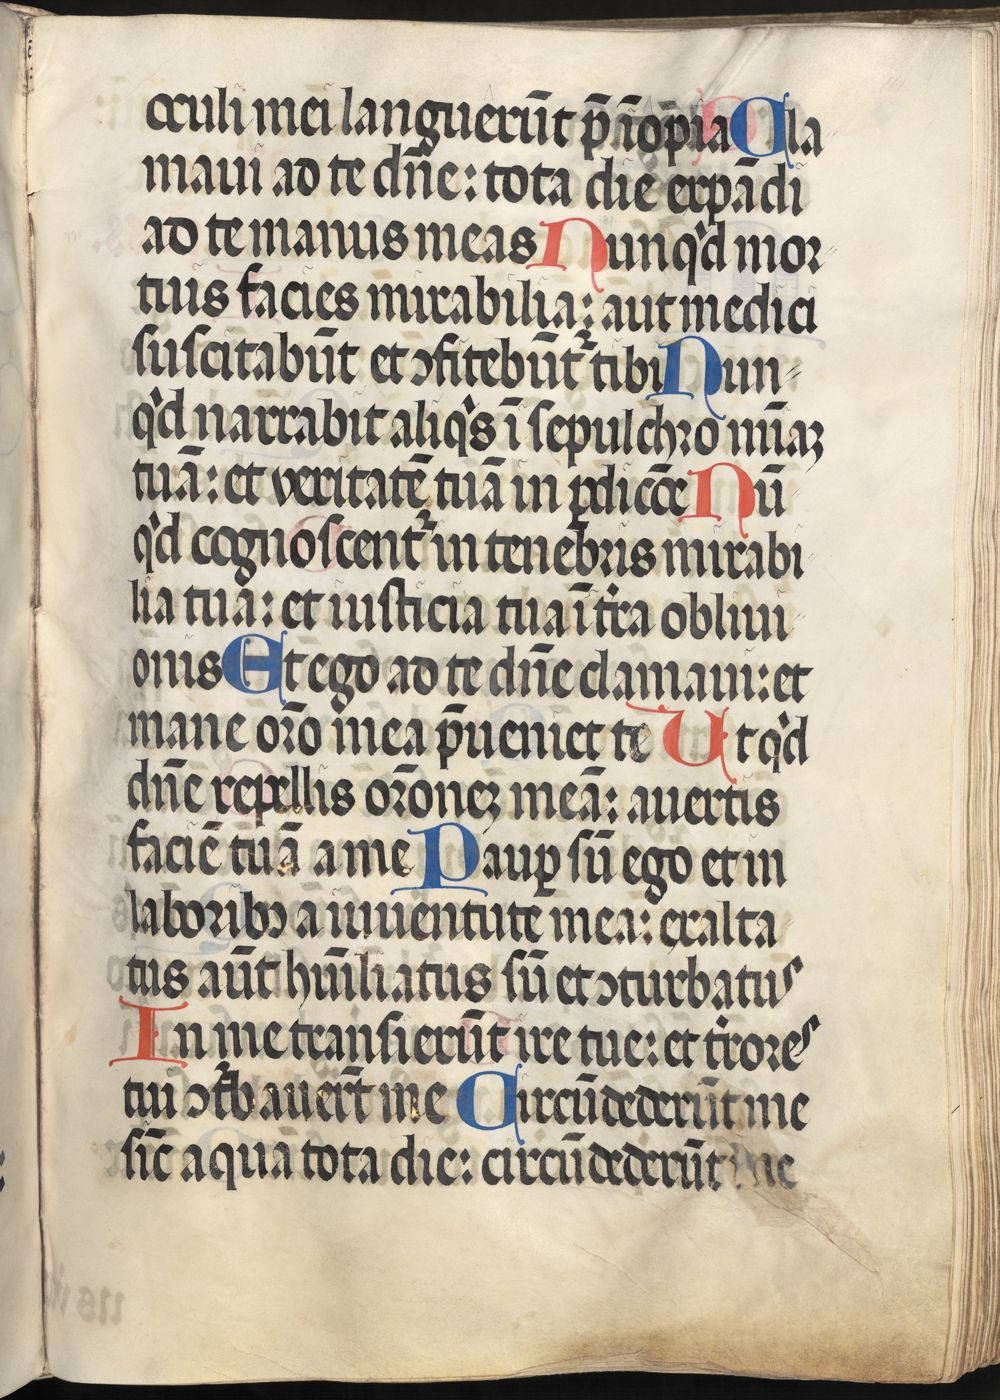 oculi mei languerūt p̄ īopia Cla
maui ad te dn̄e: tota die expādi
ad te manus meas Nunqͥd mor
tuis facies mirabilia: aut medici
suscitabūt et ↄfitebūtᷣ tibi Nun
qͥd narrabit aliqͥs ī sepulchro mīaꝫ
tuā: et veritatē tuā in ꝑdicōe Nū
qͥd cognoscentᷣ in tenebris mirabi
lia tua: et iusticia tua ī tr̄a obliui
onis Et ego ad te dn̄e clamaui: et
mane or̄o mea p̄ueniet te Ut qͥd
dn̄e repellis or̄oneꝫ meā: auertis
faciē tuā a me Pauꝑ sū ego et in
laboribꝫ a iuuentute mea: exalta
tus aūt hūiliatus sū et ↄturbatus
In me transierūt ire tue: et tr̄ores
tui ↄt͛bauer̄t me Circūdederūt me
sic̄ aqua tota die: circūdederūt me